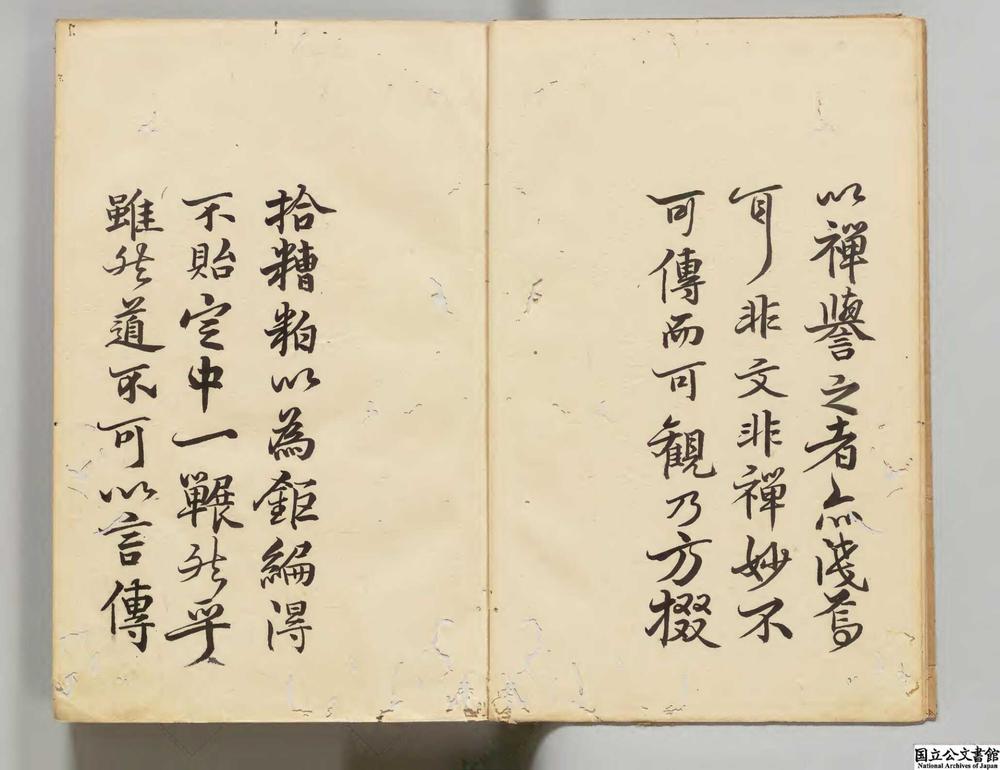 以禪譽之者亦淺焉
耳非文非禪妙不
可傳而可觀乃方掇
拾糟粕以為鉅編得
不貽定中一囅然乎
雖然道不可以言傳
国立公文書館
National Archives of Japan